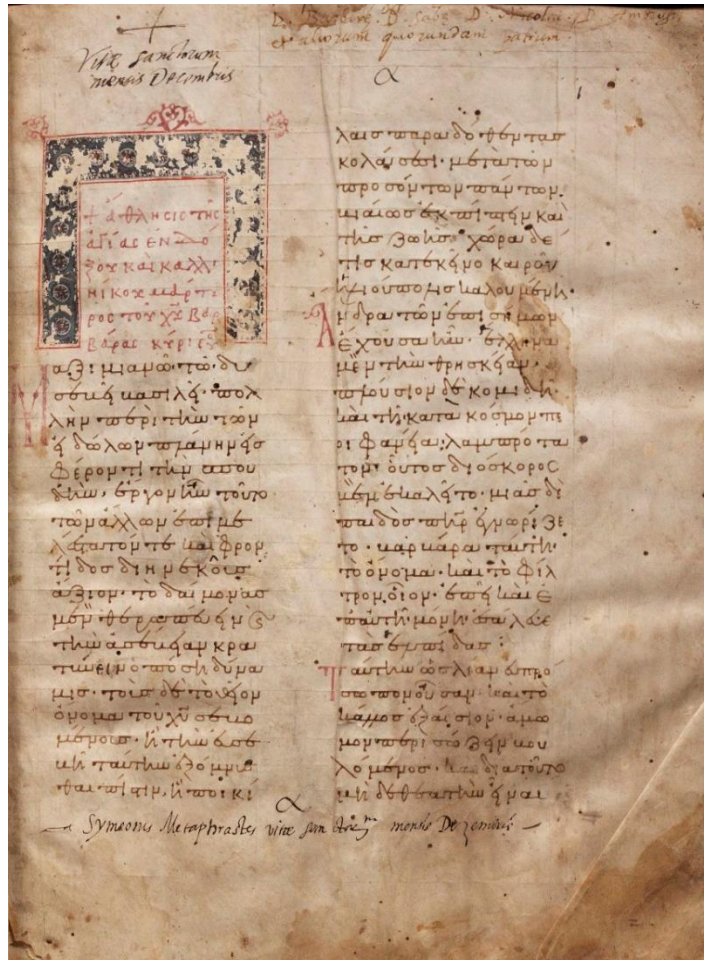 Vitæ sanctorum
mensis Decembris
D. Barbare. D. Sabe. D. Nicolai. D. Ambrosii
et aliorum quorundam patrum.
α
1
+ ἄθλησις τῆς
ἁγίας ἐνδό
ξου καὶ καλλι
νίκου μάρτυ
ρος τοῦ χυ βαρ
βάρας
Μαξιμιανῶ τῶ δυ
σεβεῖ βασιλεῖ· πολ
λὴν περὶ τὴν τῶν
εἰδώλων πλάνην εἰσ
φέροντι τὴν σπου
δήν, ἔργον ἦν τοῦτο
τῶν ἄλλων ἐπιμε
λέστατόν τε καὶ φρον
τίδος διηνεκοῦς
ἄξιον· τὸ δαίμονας
μὲν θεραπεύειν καὶ
τὴν ἀσέβειαν κρα
τύνειν ὁπόση δύνα
μις· τοῖς δὲ τὸ θεῖον
ὄνομα τοῦ χυ σεβο
μένοις· ἢ τὴν εὐσέ
βειαν ταύτην ἐξόμνυσ
θαι πίστιν, ἢ ποικί
λαις παραδοθέντας
κολάσεσι· μετὰ τῶν
προσόντων πάντων
βιαίως ἐκπίπτειν καὶ
τῆς ζωῆς· χώρα δέ
τις κατ' ἐκεῖνο καιροῦ
ἡλιούπολις καλουμένη·
ἄνδρα τῶν ἐπισήμων
ἔχουσα ἦν· ἕλληνα
μὲν τὴν θρησκείαν·
πλούσιον δὲ κομιδῆ·
καὶ τῆ κατὰ κόσμον πε
ριφανεία λαμπρότα
τον· οὗτος διόσκορος
μὲν ἐκαλεῖτο· μιᾶς δὲ
παιδὸς πηρ ἐγνωρίζε
το· βαρβάρα ταύτη
τὸ ὄνομα· καὶ τὸ φίλ
τρον οἷον· ἐπεὶ καὶ ἐ
π' αὐτῆ μόνη ἐσάλευε
τὰς ἐλπίδας·
Ταύτην ὡς λίαν εὐπρό
σωπον οὖσαν· καὶ τὸ
κάλλος ἐξαίσιον· ἄμω
μον περισώζειν βου
λόμενος· καὶ διὰ τοῦτο
μὴ δὲ θεατὴν εἶναι
α
Symeonis Metaphrastes vitæ sanctorum mensis Dezembris